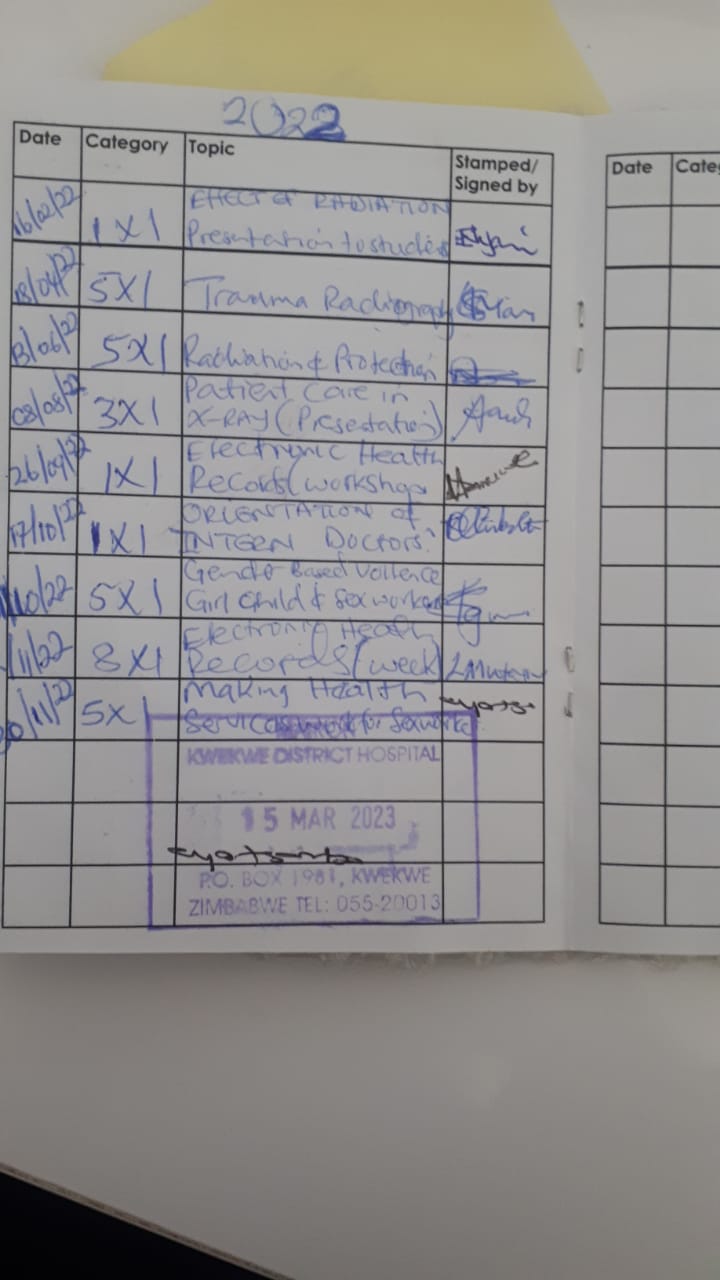 2022
Date Category Topic Stamped/ Signed by
16/02/22 1X1 EFFECT OF RADIATION
Presentation to students
18/04/22 5X1 Trauma Radiography
13/06/22 5X1 Radiation & Protection
03/08/22 3X1 Patient Care in
X-RAY (Presentation)
26/09/22 1X1 Electronic Health
Records (workshop
17/10/22 1X1 ORIENTATION of
INTERN Doctors.
/10/22 5X1 Gender Based Voilence
Girl Child & Sex workers
/11/22 8X1 Electronic Health
Records (week)
/11/22 5X1 Making Health
Services work for Sexworkers
KWEKWE DISTRICT HOSPITAL
15 MAR 2023
P.O. BOX 1981, KWEKWE
ZIMBABWE TEL: 055-20013
Date Cate